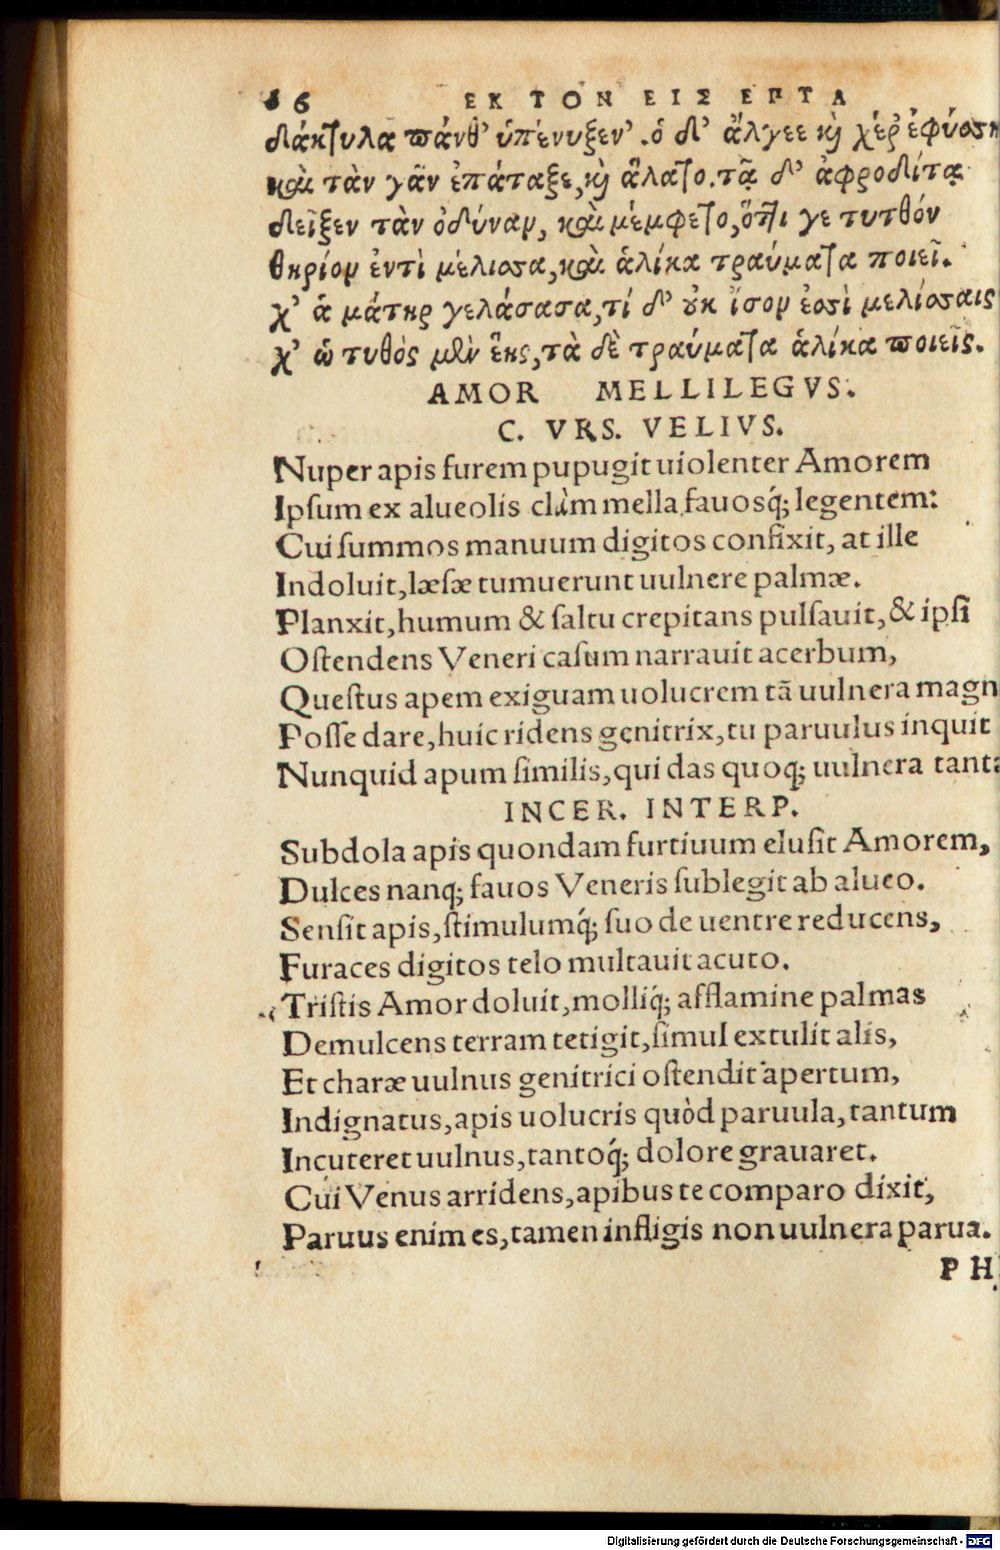 86 ΕΚ ΤΟΝ ΕΙΣ ΕΠΤΑ
δάκτυλα πάνθ᾽ ὑπένυξεν᾽. ὁ δ᾽ ἄλγεε καὶ χέρ᾽ ἐφύσση
καὶ τὰν γᾶν ἐπάταξε, καὶ ἅλατο. τᾷ δ᾽ ἀφροδίτᾳ
δεῖξεν τὰν ὀδύναν, καὶ μέμφετο, ὅττι γε τυτθόν
θηρίον ἐντὶ μέλισσα, καὶ ἁλίκα τραύματα ποιεῖ.
χ᾽ ἁ μάτηρ γελάσασα, τί δ᾽ οὐκ ἴσον ἐσσὶ μελίσσαις
χ᾽ ὡ τυθὸς μὲν ἔης, τὰ δὲ τραύματα ἁλίκα ποιεῖς.
AMOR MELLILEGVS.
C. VRS. VELIVS.
Nuper apis furem pupugit uiolenter Amorem
Ipſum ex alueolis clàm mella fauosq́; legentem:
Cui ſummos manuum digitos confixit, at ille
Indoluit, læſæ tumuerunt uulnere palmæ.
Planxit, humum & ſaltu crepitans pulſauit, & ipſi
Oſtendens Veneri caſum narrauit acerbum,
Queſtus apem exiguam uolucrem tā uulnera magn
Poſſe dare, huic ridens genitrix, tu paruulus inquit
Nunquid apum ſimilis, qui das quoq; uulnera tanta
INCER. INTERP.
Subdola apis quondam furtiuum eluſit Amorem,
Dulces nanq; fauos Veneris ſublegit ab alueo.
Senſit apis, ſtimulumq́; ſuo de uentre reducens,
Furaces digitos telo multauit acuto.
Triſtis Amor doluit, molliq́; afflamine palmas
Demulcens terram tetigit, ſimul extulit alis,
Et charæ uulnus genitrici oſtendit apertum,
Indignatus, apis uolucris quòd paruula, tantum
Incuteret uulnus, tantoq́; dolore grauaret.
Cui Venus arridens, apibus te comparo dixit,
Paruus enim es, tamen infligis non uulnera parua.
PH
Digitalisierung gefördert durch die Deutsche Forschungsgemeinschaft - DFG